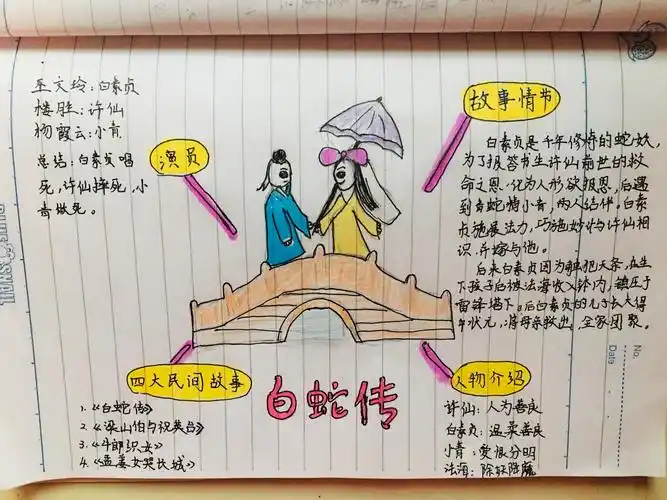 巫文玲：白素贞
楼胜：许仙
杨霞云：小青
总结：白素贞唱
死，许仙摔死，小
青做死。
演员
故事情节
白素贞是千年修得的蛇妖，
为了报答书生许仙前世的救
命之恩，化为人形欲报恩，后遇
到青蛇精小青，两人结伴。白素
贞施展法力，巧施妙计与许仙相
识，并嫁与他。
后来白素贞因为触犯天条，在生
下孩子后被法海收入钵内，镇压于
雷锋塔下。后白素贞的儿子长大得
中状元，将母亲救出，全家团聚。
四大民间故事
1.《白蛇传》
2.《梁山伯与祝英台》
3.《牛郎织女》
4.《孟姜女哭长城》
白蛇传
人物介绍
许仙：人为善良
白素贞：温柔善良
小青：爱恨分明
法海：除妖降魔
No.
Date